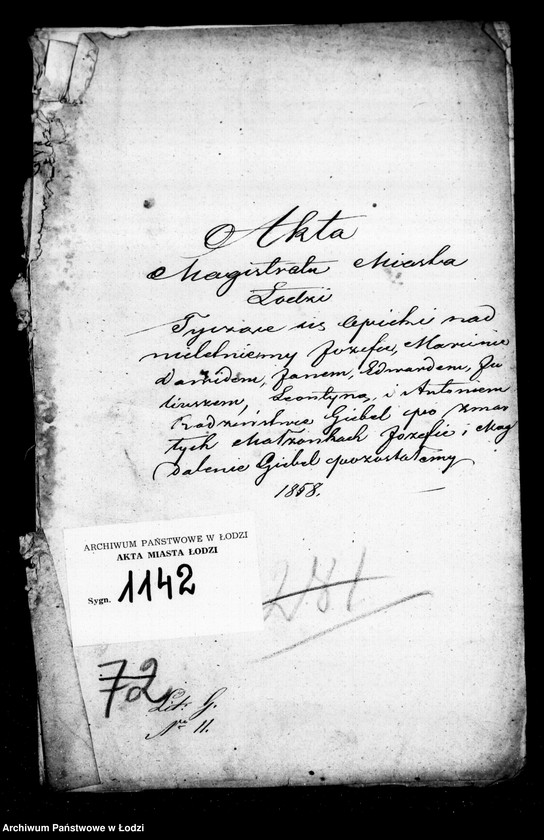 Akta
Magistratu Miasta
Łodzi
Tyczące się Opieki nad
nieletniemy Jozefie, Marcinie
Dawidem, Janem, Edwardem, Ju
liuszem, Leontyną, i Antoniem
Rodzeństwie Giebel po zmar
łych Małżonkach Jozefie i Mag
dalenie Giebel pozostałemy
1858.
ARCHIWUM PAŃSTWOWE W ŁODZI
AKTA MIASTA ŁODZI
Sygn. 1142
281
72
Litr. G.
No 11.
Archiwum Państwowe w Łodzi